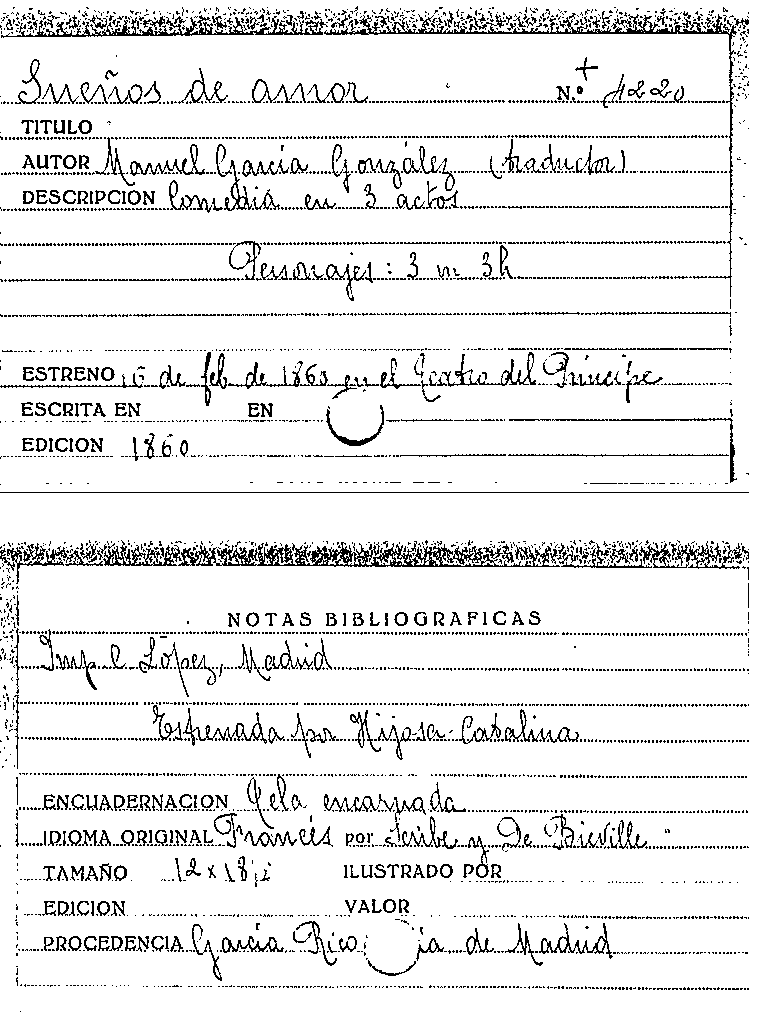 Sueños de amor N.º + 4220
TITULO
AUTOR Manuel García González (traductor)
DESCRIPCION Comedia en 3 actos
Personajes: 3 m 3h
ESTRENO 16 de feb. de 1860 en el Teatro del Príncipe
ESCRITA EN EN
EDICION 1860
NOTAS BIBLIOGRAFICAS
Imp. C. López, Madrid
Estrenada por Hijosa-Catalina
ENCUADERNACION Tela encarnada
IDIOMA ORIGINAL Francés por Scribe y De Bieville
TAMAÑO 12 x 18,
ILUSTRADO POR
EDICION VALOR
PROCEDENCIA García Rico de Madrid